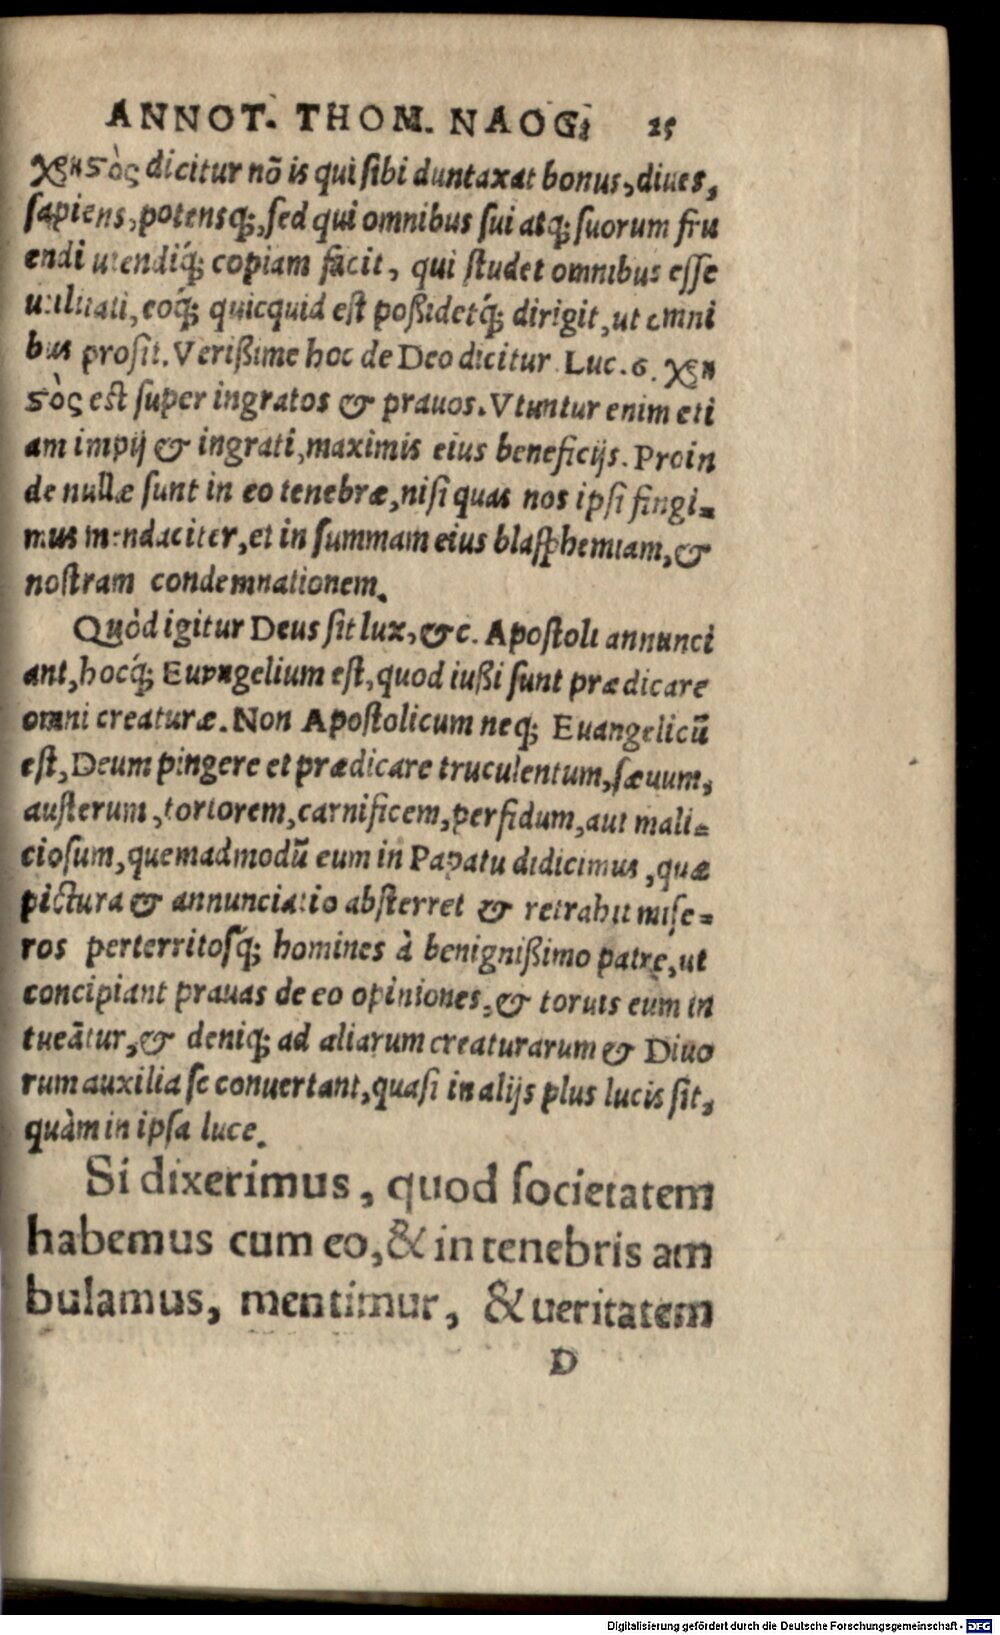 ANNOT. THOM. NAOG: 25
χρηστὸς dicitur nõ is qui sibi duntaxat bonus, diues,
sapiens, potensq́;, sed qui omnibus sui atq; suorum fru
endi utendiq́; copiam facit, qui studet omnibus esse
utilitati, eoq́; quicquid est poßidetq́; dirigit, ut omni
bus prosit. Verißime hoc de Deo dicitur Luc. 6. χρη
στὸς est super ingratos & prauos. Vtuntur enim eti
am impij & ingrati, maximis eius beneficijs. Proin
de nullæ sunt in eo tenebræ, nisi quas nos ipsi fingi=
mus mendaciter, et in summam eius blasphemiam, &
nostram condemnationem.
Quòd igitur Deus sit lux, &c. Apostoli annunci
ant, hocq́; Euangelium est, quod iußi sunt prædicare
omni creaturæ. Non Apostolicum neq; Euangelicũ
est, Deum pingere et prædicare truculentum, sæuum,
austerum, tortorem, carnificem, perfidum, aut mali=
ciosum, quemadmodũ eum in Papatu didicimus, quæ
pictura & annunciatio absterret & retrahit mise=
ros perterritosq́; homines à benignißimo patre, ut
concipiant prauas de eo opiniones, & toruis eum in
tueãtur, & deniq; ad aliarum creaturarum & Diuo
rum auxilia se conuertant, quasi in alijs plus lucis sit,
quàm in ipsa luce.
Si dixerimus, quod societatem
habemus cum eo, & in tenebris am
bulamus, mentimur, & ueritatem
D
Digitalisierung gefördert durch die Deutsche Forschungsgemeinschaft - DFG